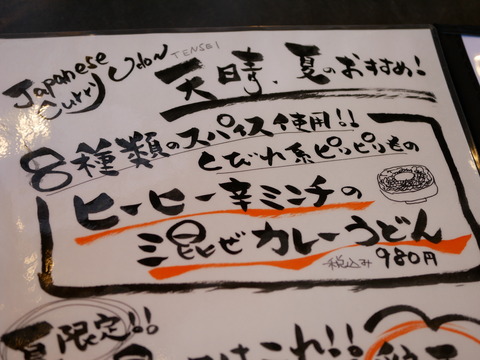 Japanese Curry Udon TENSEI
天晴、夏のおすすめ!
8種類のスパイス使用!!
とびれ系ピリピリもの
ヒーヒー辛ミンチの
混ぜカレーうどん
税込み 980円
夏限定!!
はこれ!!